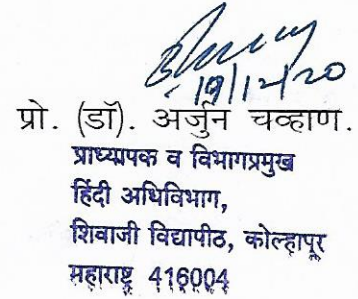 19/12/20
प्रो. (डॉ). अर्जुन चव्हाण.
प्राध्यापक व विभागप्रमुख
हिंदी अधिविभाग,
शिवाजी विद्यापीठ, कोल्हापूर
महाराष्ट्र 416004